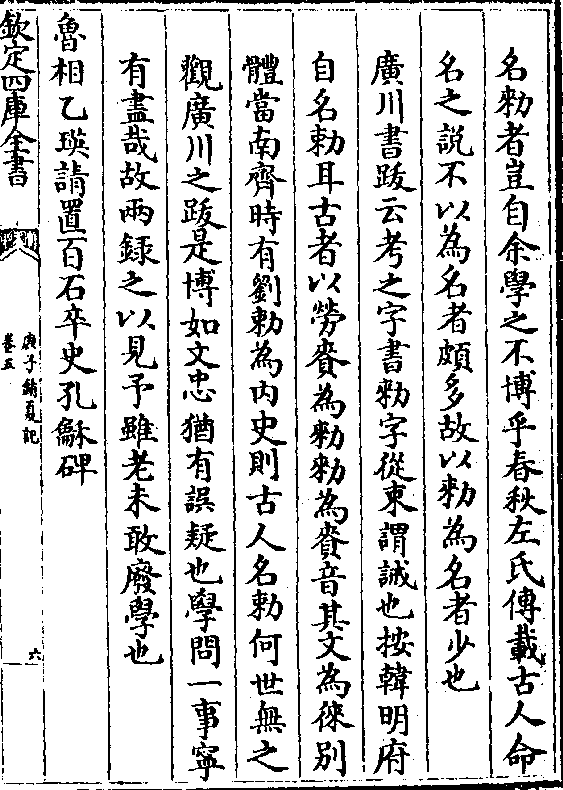 名勑者豈自余學之不博乎春秋左氏傳載古人命
名之說不以為名者頗多故以勑為名者少也
廣川書跋云考之字書勑字從東謂誡也按韓明府
自名勅耳古者以勞賚為勑勑為賚音其文為徠别
體當南齊時有劉勅為内史則古人名勅何世無之
觀廣川之跋是博如文忠猶有誤疑也學問一事寧
有盡哉故兩録之以見予雖老未敢廢學也
魯相乙瑛請置百石卒史孔龢碑
欽定四庫全書
庚子銷夏記
卷五
六